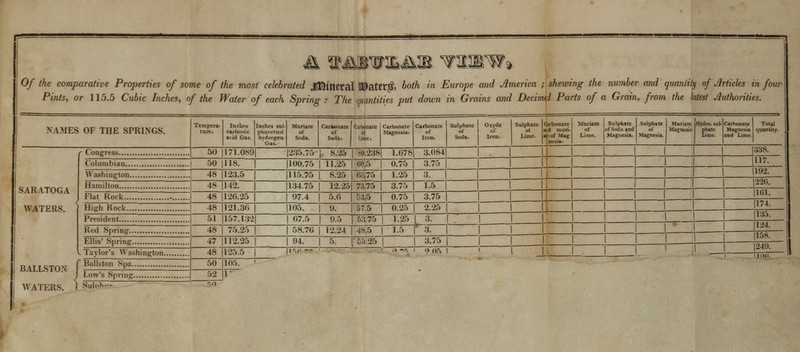 A TABULAR VIEW,
Of the comparative Properties of some of the most celebrated Mineral Waters, both in Europe and America ; shewing the number and quantity of Articles in four
Pints, or 115.5 Cubic Inches, of the Water of each Spring : The quantities put down in Grains and Decimal Parts of a Grain, from the latest Authorities.
NAMES OF THE SPRINGS. Tempera-ture. Inches carbonic acid Gas. Inches sul-phuretted hydrogen Gas. Muriate of Soda. Carbonate of Soda. Carbonate of Lime. Carbonate Magnesia. Carbonate of Iron. Sulphate of Soda. Oxyde of Iron. Sulphate of Lime. Carbonate and muri-at of Mag-nesia. Muriate of Lime. Sulphate of Soda and Magnesia. Sulphate of Magnesia. Muriate Magnesia Hydro. sul-phate Lime. Carbonate Magnesia and Lime. Total quantity.
SARATOGA WATERS.
Congress 50 171.089 235.75 8.25 89.238 1.678 3.084 338.
Columbian 50 118. 100.75 11.25 60.5 0.75 3.75 117.
Washington 48 123.5 115.75 8.25 63.75 1.25 3. 192.
Hamilton 48 142. 134.75 12.25 73.75 3.75 1.5 226.
Flat Rock 48 126.25 97.4 5.6 53.5 0.75 3.75 161.
High Rock 48 121.36 105. 9. 57.5 0.25 2.25 174.
President 51 157.132 67.5 9.5 53.75 1.25 3. 135.
Red Spring 48 75.25 58.76 12.24 48.5 1.5 3. 124.
Ellis' Spring 47 112.25 94. 5. 55.25 3.75 158.
Taylor's Washington 48 125.5 249.
BALLSTON WATERS.
Ballston Spa 50 105.
Low's Spring 52